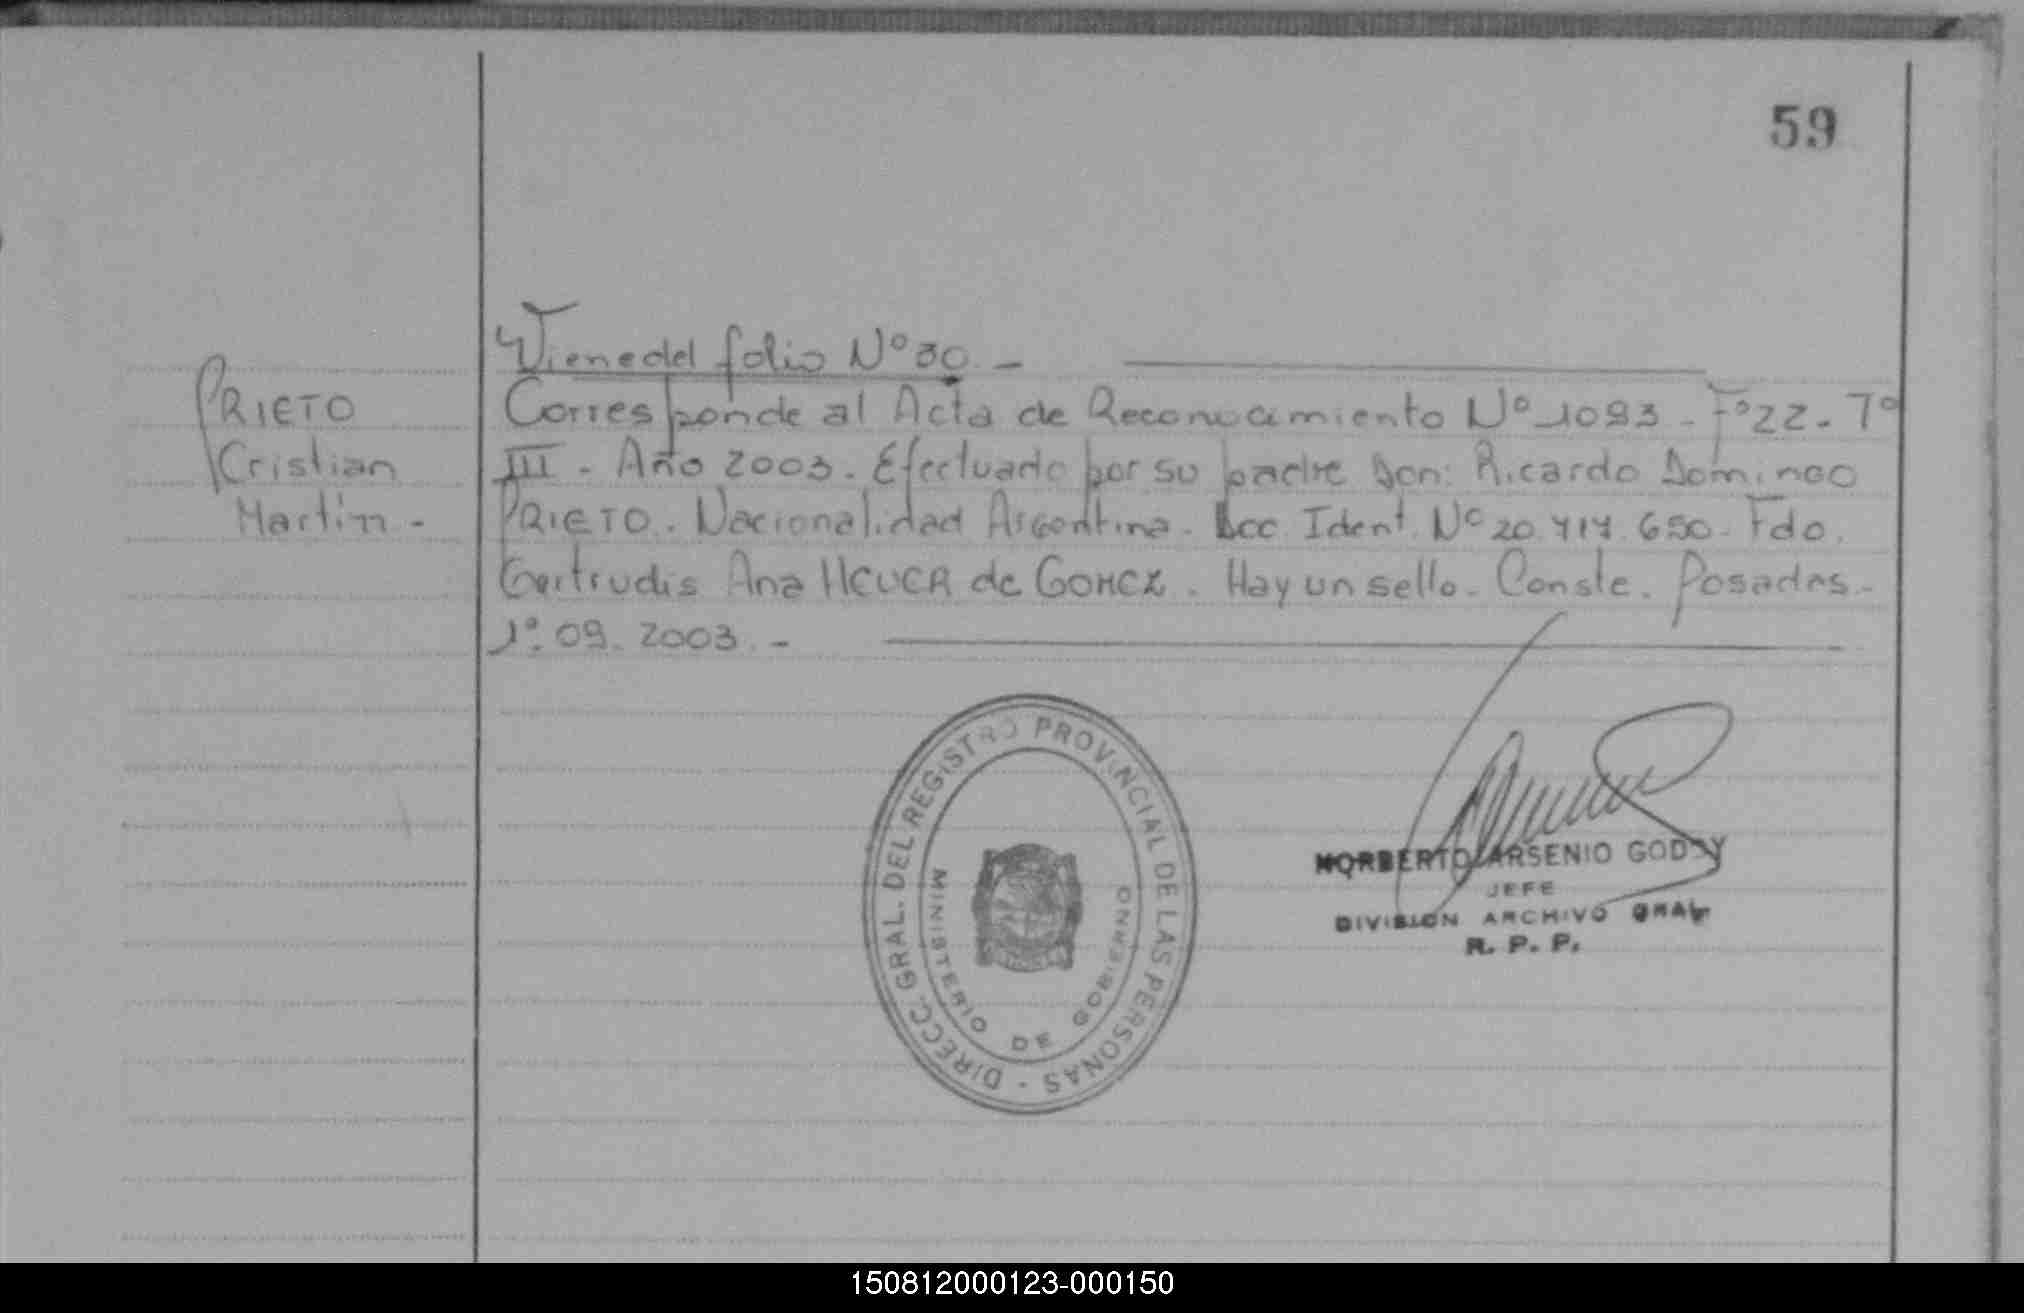 59
Viene del folio Nº 30. -
PRIETO
Cristian
Martín -
Corresponde al Acta de Reconocimiento Nº 1093 - Fº 22 - Tº
III - Año 2003. Efectuado por su padre Don: Ricardo Domingo
PRIETO. Nacionalidad Argentina. Doc. Ident. Nº 20.717.650 - Fdo.
Gertrudis Ana de GOMEZ. Hay un sello. Conste. Posadas -
1º. 09. 2003. -
DIRECC. GRAL. DEL REGISTRO PROVINCIAL DE LAS PERSONAS -
MINISTERIO DE GOBIERNO
NORBERTO ARSENIO GODOY
JEFE
DIVISION ARCHIVO GRAL
R. P. P.
150812000123-000150